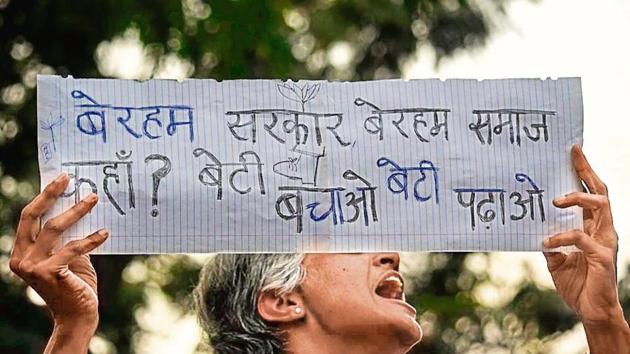 बेरहम सरकार, बेरहम समाज
कहाँ? बेटी बचाओ बेटी पढ़ाओ